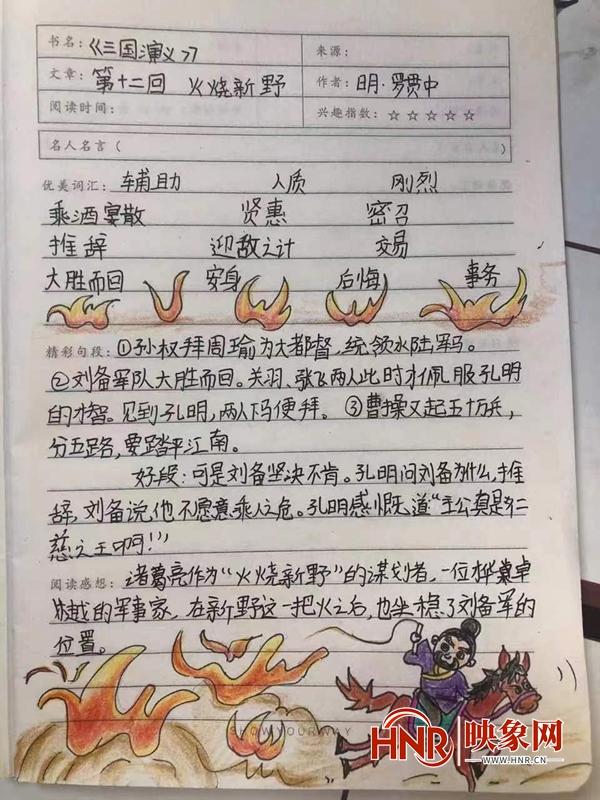 书名:《三国演义》
来源:
文章:第十二回 火烧新野
作者:明·罗贯中
阅读时间:
兴趣指数:☆☆☆☆☆
名人名言(                )
优美词汇:辅助 人质 刚烈
乘酒宴散 贤惠 密召
推辞 迎敌之计 交易
大胜而回 安身 后悔 事务
精彩句段:①孙权拜周瑜为大都督,统领水陆军马。
②刘备军队大胜而回。关羽、张飞两人此时才佩服孔明
的才智。见到孔明,两人下马便拜。 ③曹操又起五十万兵,
分五路,要踏平江南。
好段:可是刘备坚决不肯。孔明问刘备为什么推
辞,刘备说,他不愿意乘人之危。孔明感慨道“主公真是仁
慈之王啊!”
阅读感想:诸葛亮作为“火烧新野”的谋划者,一位卓
越的军事家,在新野这一把火之后,也坐稳了刘备军的
位置。
SHOW YOUR WAY
HNR 映象网
WWW.HNR.CN